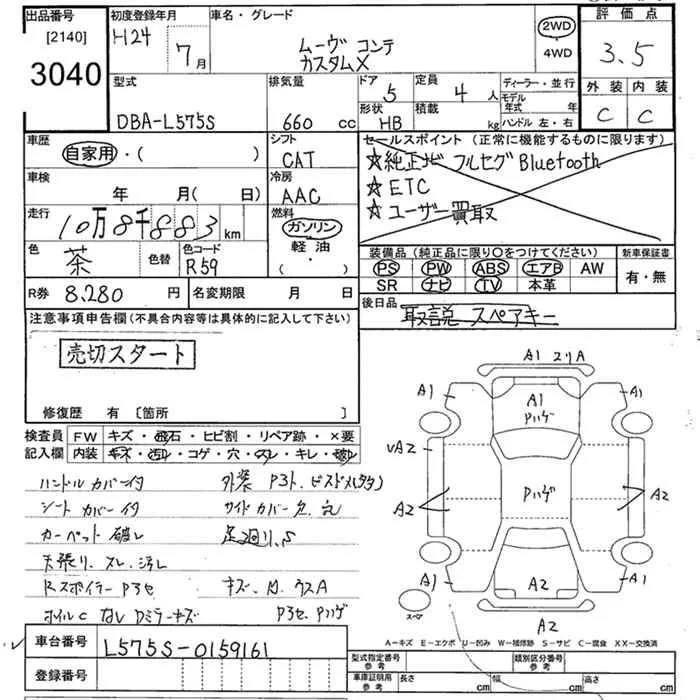 出品番号 初度登録年月 車名・グレード 評価点
[2140] H24 7月 ムーヴ コンテ 2WD 3.5
3040 カスタムX ・4WD
型式 排気量 ドア 定員 ディーラー・並行 外装 内装
DBA-L575S 660 cc 5 4人 モデル年式 年 C C
形状 積載 ハンドル 左・右
HB kg
車歴 シフト セールスポイント (正常に機能するものに限ります)
自家用・( ) CAT ☆純正ナビ フルセグ Bluetooth
車検 冷房 ☆ETC
年 月( 日) AAC ☆ユーザー買取
走行 燃料
10万8千883km ガソリン
色 色替 色コード 軽油 装備品(純正品に限り○をつけてください) 新車保証書
茶 R59 (・) PS PW ABS エアB AW 有・無
SR ナビ TV 本革
R券 8,280円 名変期限 月 日 後日品
取説 スペアキー
注意事項申告欄(不具合内容等は具体的に記入して下さい)
売切スタート
修復歴 有 [箇所 ]
検査員 FW キズ・飛石・ヒビ割・リペア跡・×要
記入欄 内装 キズ・汚れ・コゲ・穴・スレ・キレ・破レ
ハンドル カバー付 外装 P3ト.
シート カバー付 サイドカバー
カーペット 破レ 足廻り.S
天張り.スレ.汚レ
Rスポイラー P3セ キズ. ウスA
ホイルC なし Dミラーキズ P3セ.Pハゲ
A1
A1 A1 A1
Pハゲ
A2
Pハゲ
A2 A2
A1 A2 A1
スペア A2
A-キズ E-エクボ U-凹み W-補修跡 S-サビ C-腐食 XX-交換済
車台番号 L575S-0159161
登録番号
型式指定番号 参考 類別区分番号 参考
車庫証明 参考 長さ cm 幅 cm 高さ cm